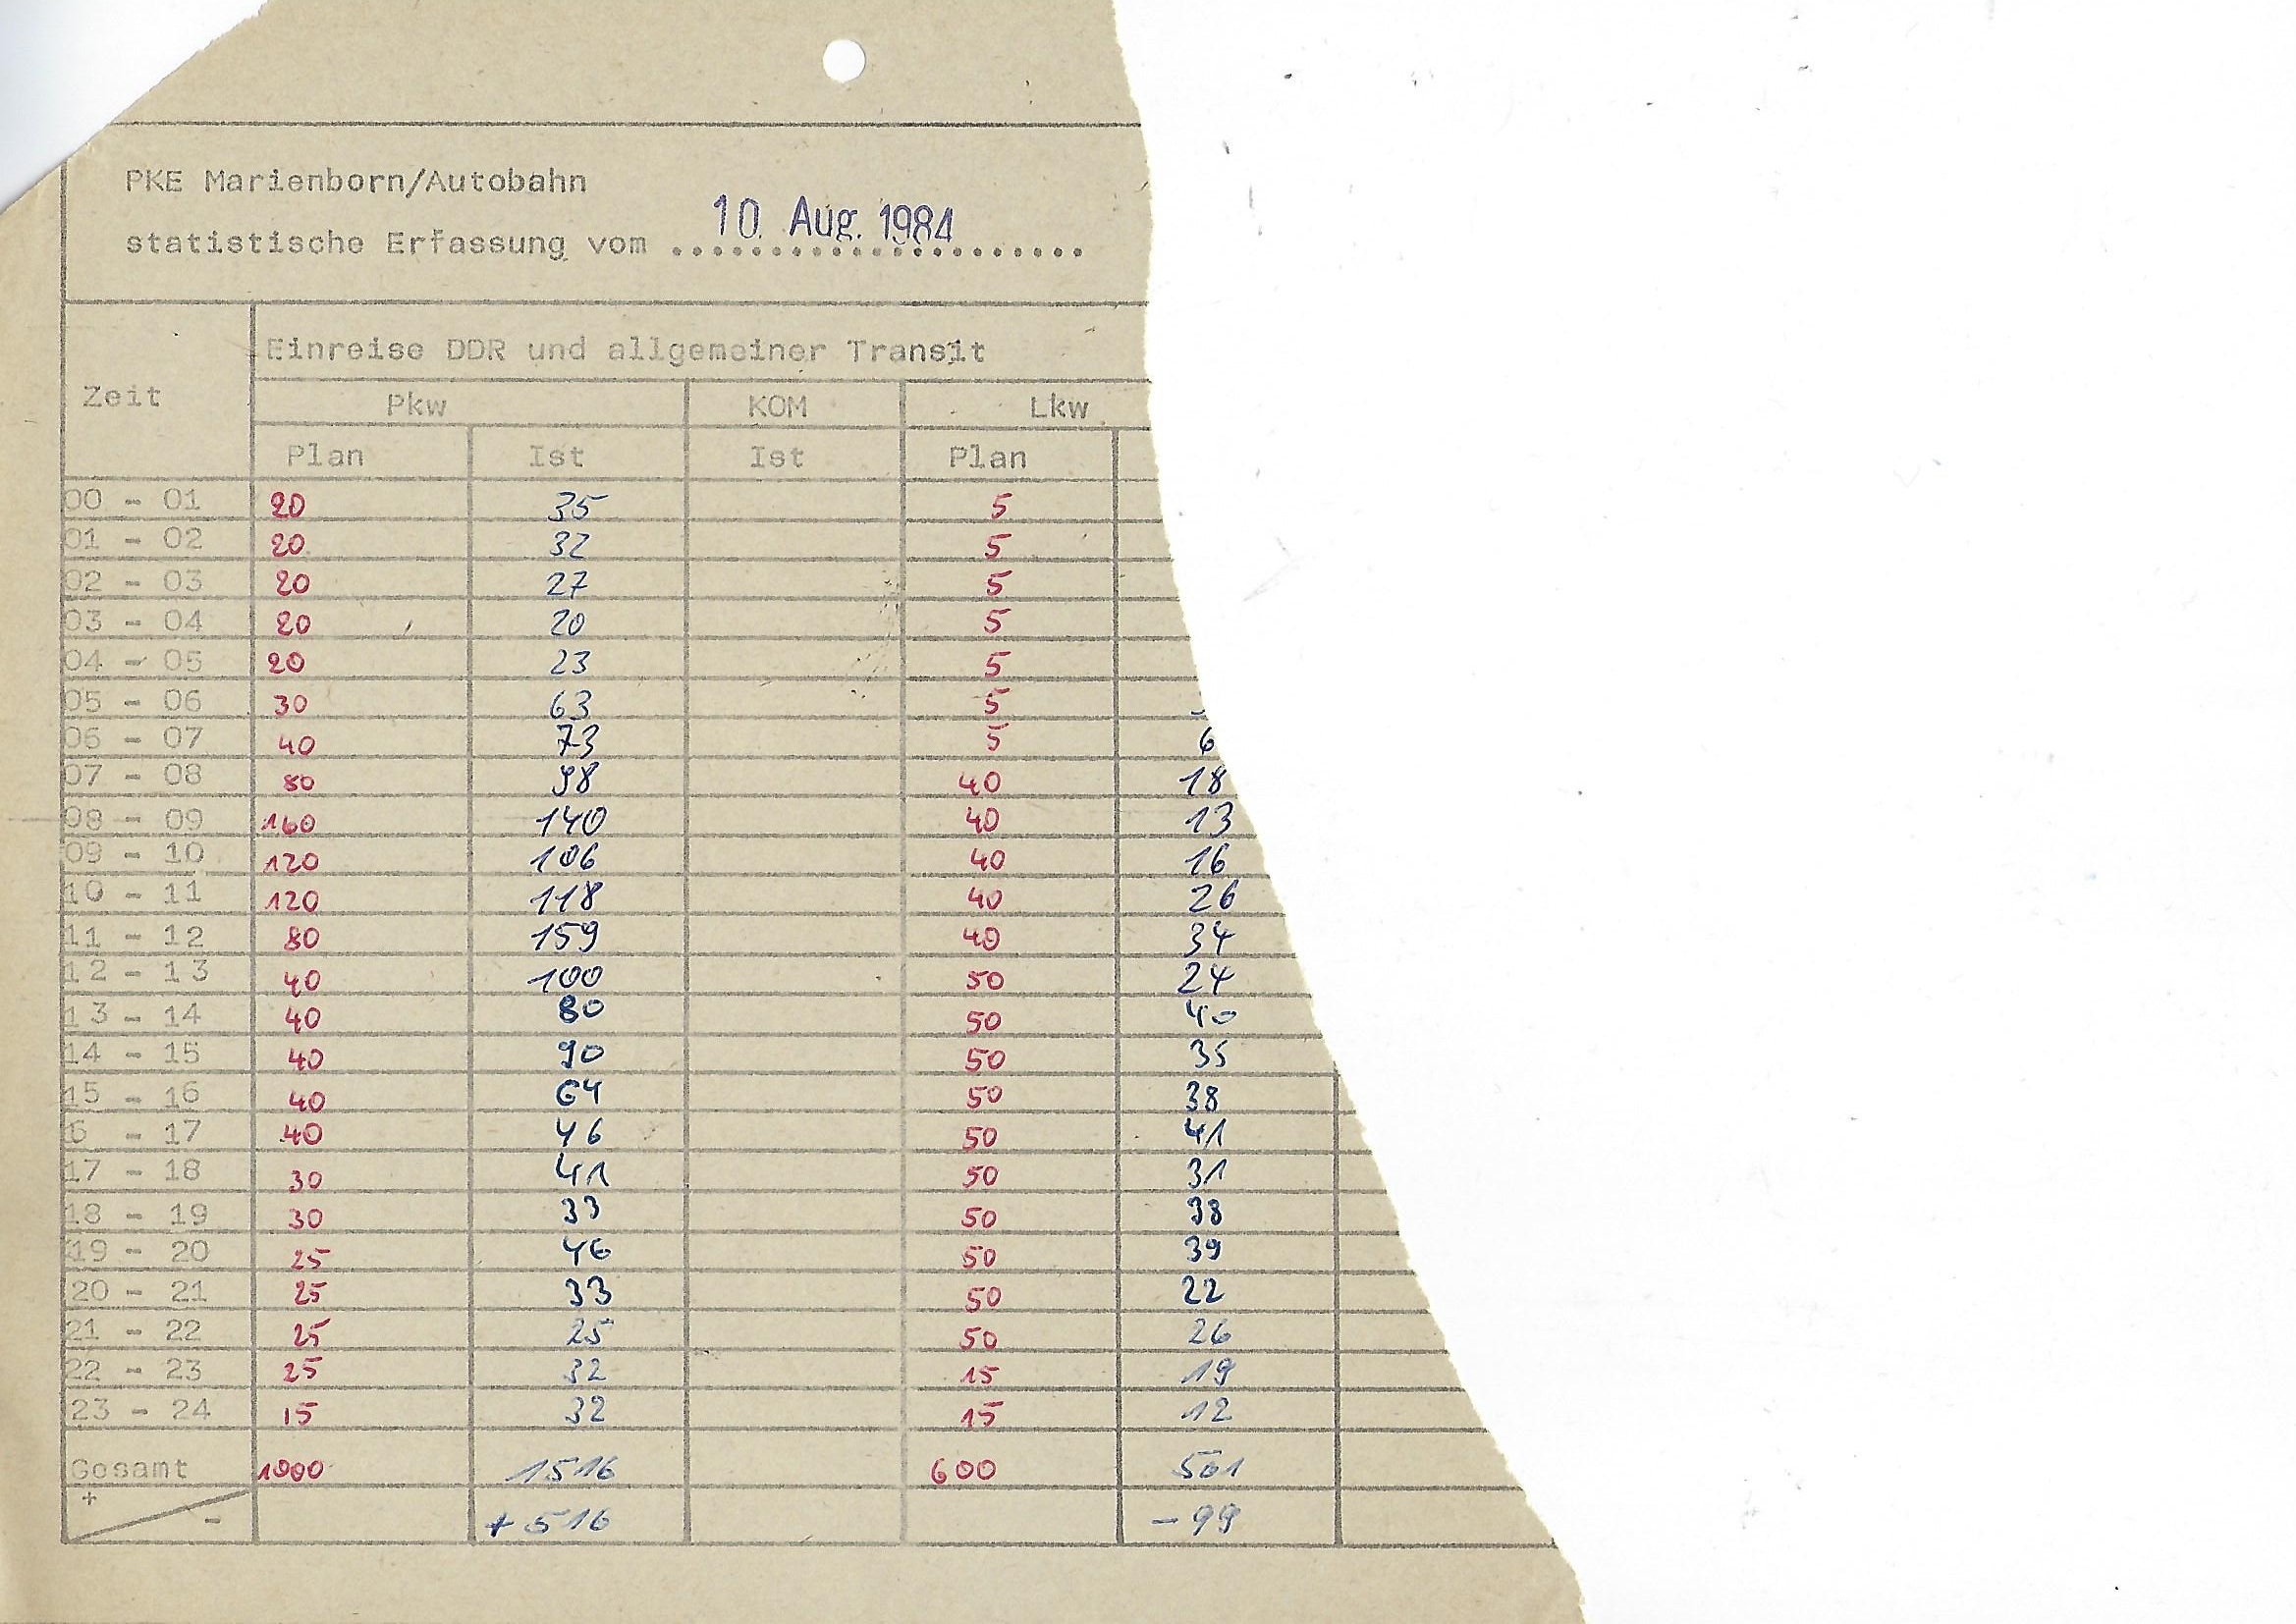 PKE Marienborn/Autobahn
statistische Erfassung vom 10. Aug. 1984
Einreise DDR und allgemeiner Transit
Zeit
Pkw KOM Lkw
Plan Ist Ist Plan
00 - 01 20 35 5
01 - 02 20 32 5
02 - 03 20 27 5
03 - 04 20 20 5
04 - 05 20 23 5
05 - 06 30 63 5
06 - 07 40 73 5 6
07 - 08 80 98 40 18
08 - 09 160 140 40 13
09 - 10 120 106 40 16
10 - 11 120 118 40 26
11 - 12 80 159 40 34
12 - 13 40 100 50 24
13 - 14 40 80 50 40
14 - 15 40 90 50 35
15 - 16 40 64 50 38
6 - 17 40 46 50 41
17 - 18 30 41 50 31
18 - 19 30 33 50 38
19 - 20 25 46 50 39
20 - 21 25 33 50 22
21 - 22 25 25 50 26
22 - 23 25 32 15 19
23 - 24 15 32 15 12
Gesamt 1000 1516 600 501
+ - + 516 - 99